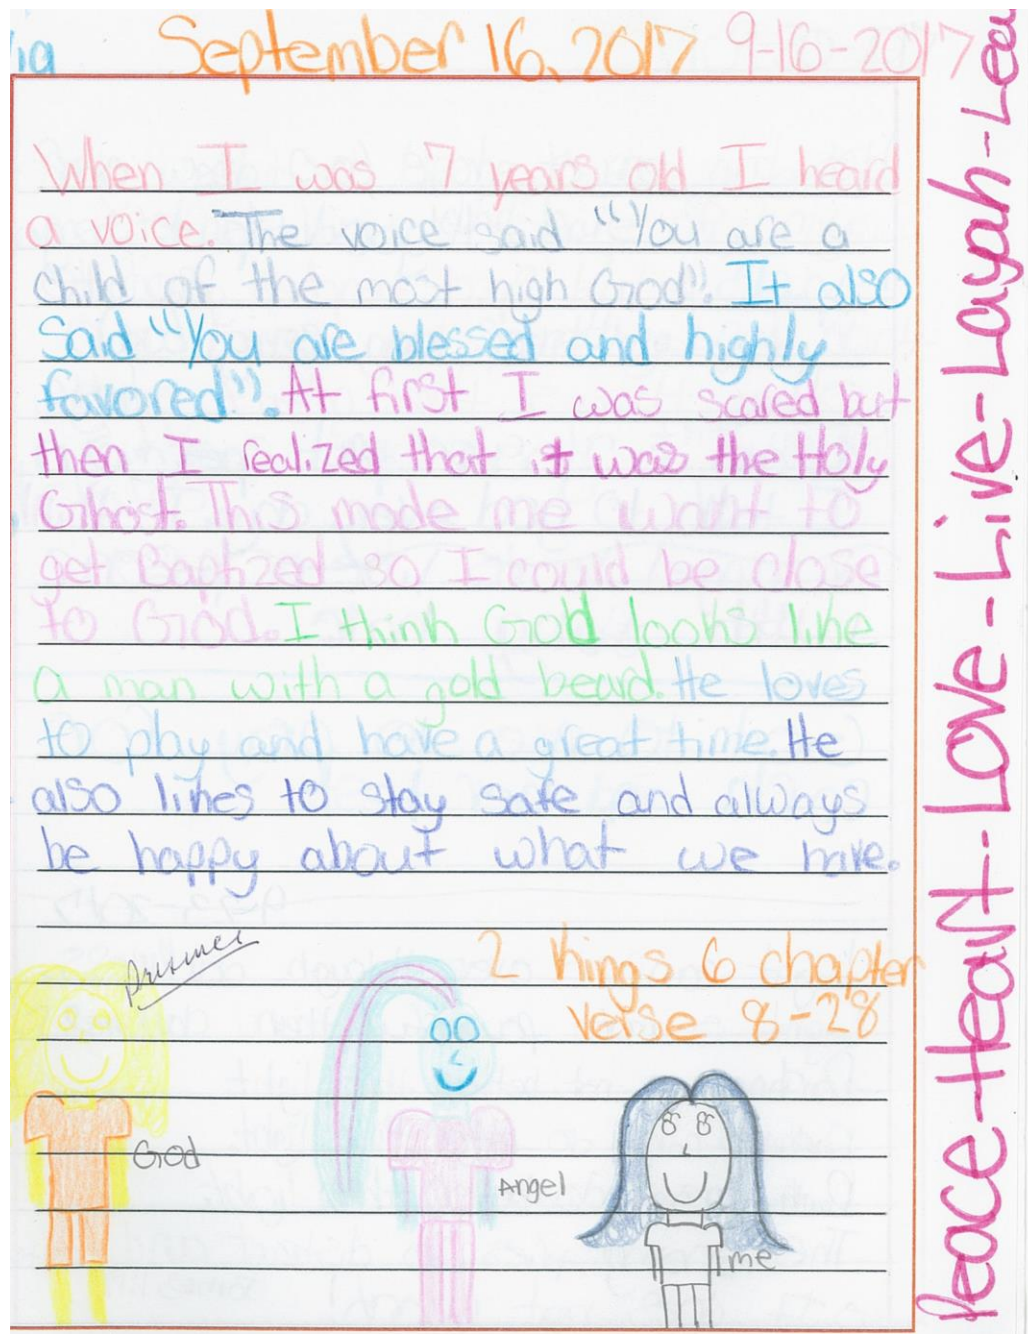 ia September 16, 2017 9-16-2017
When I was 7 years old I heard
a voice. The voice said "You are a
child of the most high God". It also
said "You are blessed and highly
favored". At first I was scared but
then I realized that it was the Holy
Ghost. This made me want to
get Baptized so I could be close
to God. I think God looks like
a man with a gold beard. He loves
to play and have a great time. He
also likes to stay safe and always
be happy about what we have.
2 kings 6 chapter
verse 8-28
God
Angel
me
Peace-Heart-Love-Live-Layah-Lea